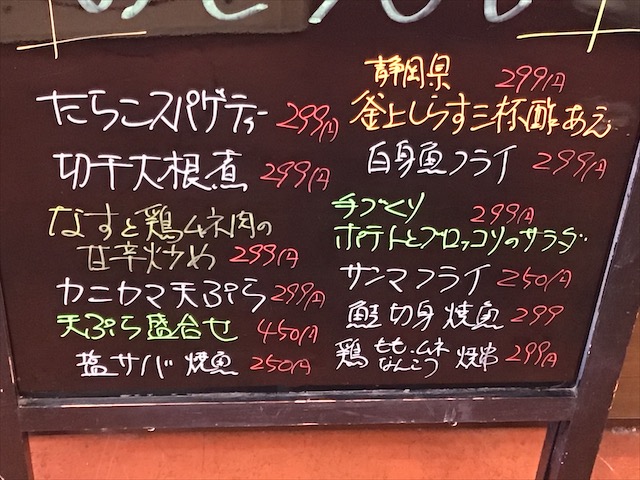 たらこスパゲティー 299円
切干大根煮 299円
なすと鶏ムネ肉の
甘辛炒め 299円
カニカマ天ぷら 299円
天ぷら盛合せ 450円
塩サバ焼魚 250円
静岡県 299円
釜上しらす三杯酢あえ
白身魚フライ 299円
手づくり 299円
ポテトとブロッコリのサラダ
サンマフライ 250円
鮭切身焼魚 299
鶏 もも、ムネ なんこつ 焼串 299円